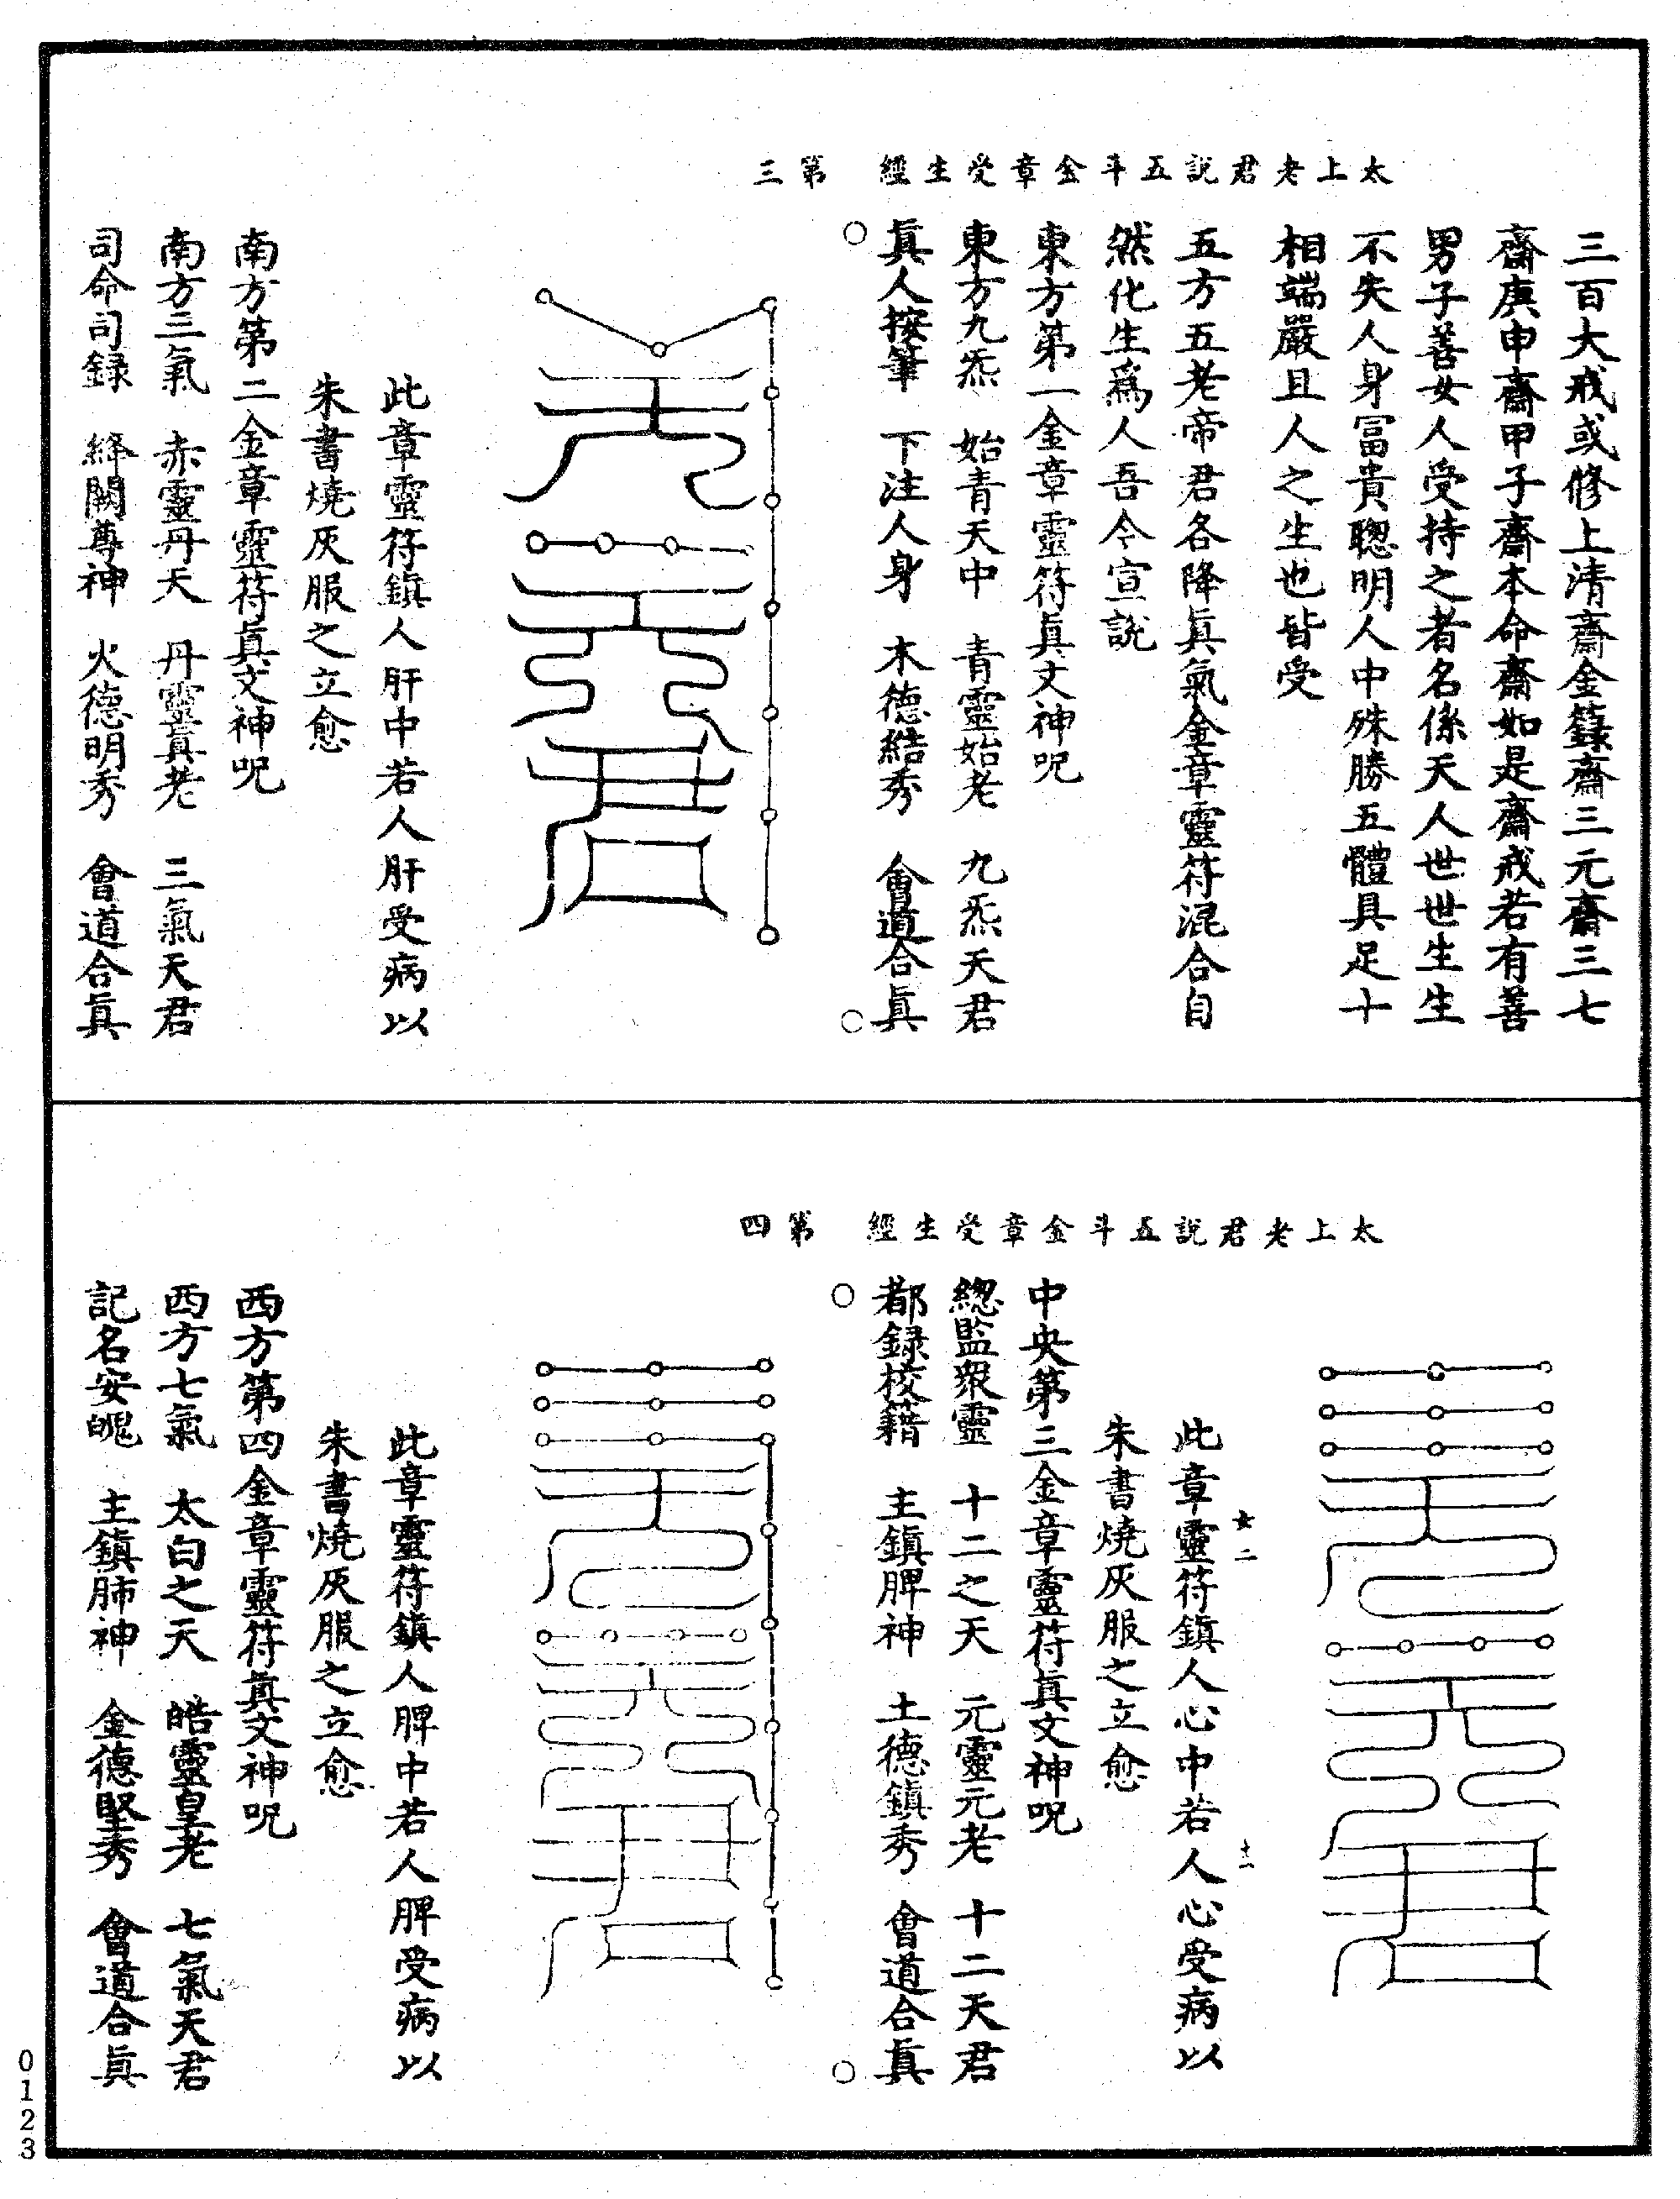 太上老君說五斗金章受生經　第三
三百大戒或修上清齋金籙齋三元齋三七
齋庚申齋甲子齋本命齋如是齋戒若有善
男子善女人受持之者名係天人世世生生
不失人身冨貴聰明人中殊勝五體具足十
相端嚴且人之生也皆受
五方五老帝君各降眞氣金章靈符混合自
然化生爲人吾今宣說
東方第一金章靈符眞文神呪
東方九炁　始青天中　青靈始老　九炁天君
眞人按筆　下注人身　木德結秀　會道合眞
此章靈符鎮人肝中若人肝受病以
朱書燒灰服之立愈
南方第二金章靈符眞文神呪
南方三氣　赤靈丹天　丹靈眞老　三氣天君
司命司録　絳闕尊神　火德明秀　會道合眞
太上老君說五斗金章受生經　第四
女二
十一
此章靈符鎮人心中若人心受病以
朱書燒灰服之立愈
中央第三金章靈符眞文神呪
緫監衆靈　十二之天　元靈元老　十二天君
都録校籍　主鎮脾神　土德鎮秀　會道合眞
此章靈符鎮人脾中若人脾受病以
朱書燒灰服之立愈
西方第四金章靈符眞文神呪
西方七氣　太白之天　皓靈皇老　七氣天君
記名安魄　主鎮肺神　金德堅秀　會道合眞
0123